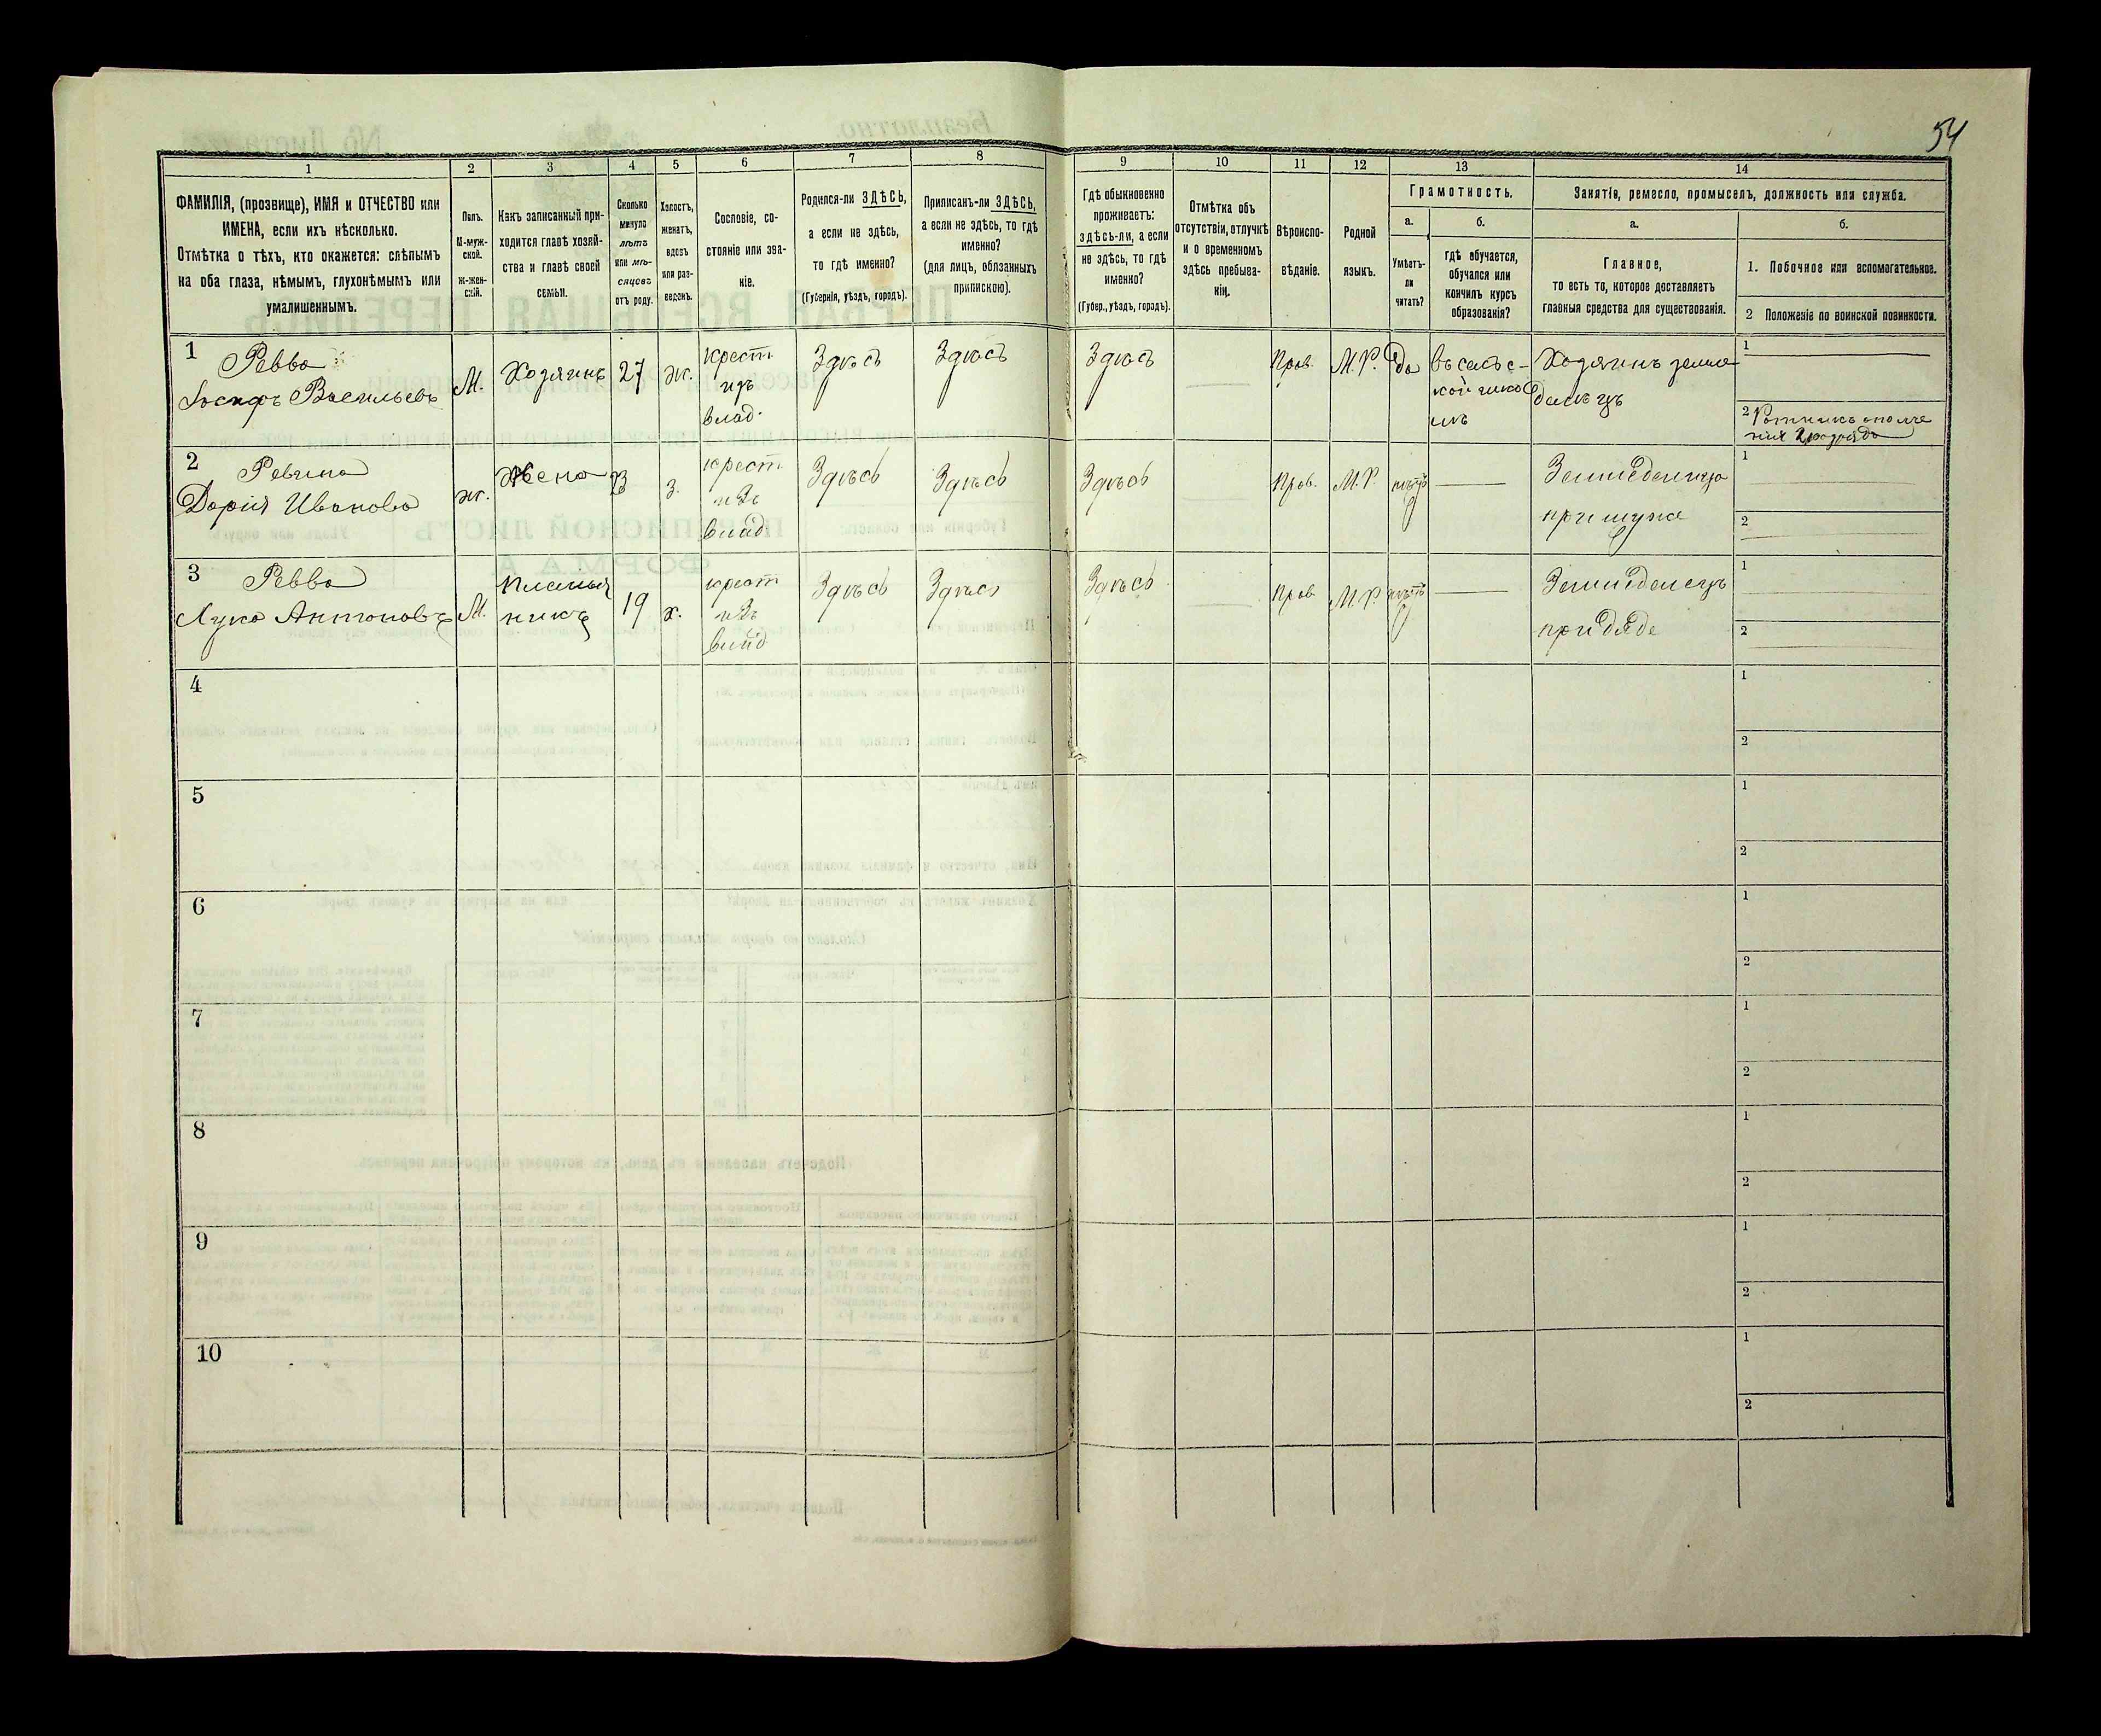 54
1
2
3
4
5
6
7
8
9
10
11
12
13
14
ФАМИЛІЯ, (прозвище), ИМЯ и ОТЧЕСТВО или
ИМЕНА, если ихъ нѣсколько.
Отмѣтка о тѣхъ, кто окажется: слѣпымъ
на оба глаза, нѣмымъ, глухонѣмымъ или
умалишеннымъ.
Полъ.
М-муж-
ской.
Ж-жен-
скій.
Какъ записанный при-
ходится главѣ хозяй-
ства и главѣ своей
семьи.
Сколько
минуло
лѣтъ
или мѣ-
сяцевъ
отъ роду.
Холостъ,
женатъ,
вдовъ
или раз-
веденъ.
Сословіе, со-
стояніе или зва-
ніе.
Родился-ли ЗДѢСЬ,
а если не здѣсь,
то гдѣ именно?
(Губернія, уѣздъ, городъ).
Приписанъ-ли ЗДѢСЬ,
а если не здѣсь, то гдѣ
именно?
(для лицъ, обязанныхъ
припискою).
Гдѣ обыкновенно
проживаетъ:
здѣсь-ли, а если
не здѣсь, то гдѣ
именно?
(Губер., уѣздъ, городъ).
Отмѣтка объ
отсутствіи, отлучкѣ
и о временномъ
здѣсь пребыва-
ніи.
Вѣроиспо-
вѣданіе.
Родной
языкъ.
Грамотность.
а.
Умѣетъ-
ли
читать?
б.
гдѣ обучается,
обучался или
кончилъ курсъ
образованія?
Занятія, ремесло, промыселъ, должность или служба.
а.
Главное,
то есть то, которое доставляетъ
главныя средства для существованія.
б.
1. Побочное или вспомогательное.
2 Положеніе по воинской повинности.
1
Ревва
Іосифъ Васильевъ
М.
Хозяинъ
27
ж.
крест.
изъ
влад.
Здѣсь
Здѣсь
Здѣсь
Прав.
М.Р.
да
въ сельс-
кой школ
Хозяинъ земле
делецъ
1
2 Ратникъ ополче
нія 2 разряда
2
Ревина
Дарія Иванова
ж.
Жена
23
з.
крест.
изъ
влад.
Здѣсь
Здѣсь
Здѣсь
Прав.
М.Р.
нѣтъ
Земледелица
при муже
1
2
3
Ревва
Лука Антоновъ
М.
племян
никъ
19
х.
крест
изъ
влад
Здѣсь
Здѣсь
Здѣсь
Прав
М.Р.
нѣтъ
Земледелецъ
при дяде
1
2
4
1
2
5
1
2
6
1
2
7
1
2
8
1
2
9
1
2
10
1
2